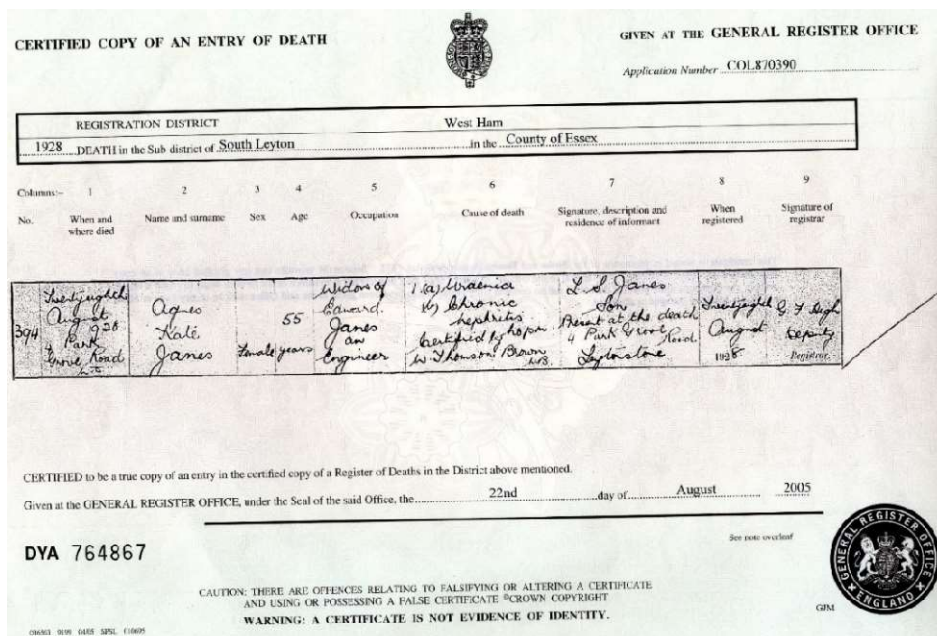 CERTIFIED COPY OF AN ENTRY OF DEATH
GIVEN AT THE GENERAL REGISTER OFFICE
Application Number COL870390
REGISTRATION DISTRICT West Ham
1928 DEATH in the Sub district of South Leyton in the County of Essex
Columns:- 1 2 3 4 5 6 7 8 9
No. When and where died Name and surname Sex Age Occupation Cause of death Signature, description and residence of informant When registered Signature of registrar
394
August
1928
4 Park
Grove Road
Agnes
Kate
Janes
Female
55
years
Widow of
Edward
Janes
an
Engineer
1 (a) Uraemia
(b) Chronic
nephritis
Certified by
W. Thomson Brown
M.B.
L. S. Janes
Son
Present at the death
4 Park Grove Road
Leytonstone
August
1928
Deputy
Registrar
CERTIFIED to be a true copy of an entry in the certified copy of a Register of Deaths in the District above mentioned.
Given at the GENERAL REGISTER OFFICE, under the Seal of the said Office, the 22nd day of August 2005
See note overleaf
DYA 764867
GENERAL REGISTER OFFICE
ENGLAND
CAUTION: THERE ARE OFFENCES RELATING TO FALSIFYING OR ALTERING A CERTIFICATE
AND USING OR POSSESSING A FALSE CERTIFICATE ©CROWN COPYRIGHT
WARNING: A CERTIFICATE IS NOT EVIDENCE OF IDENTITY.